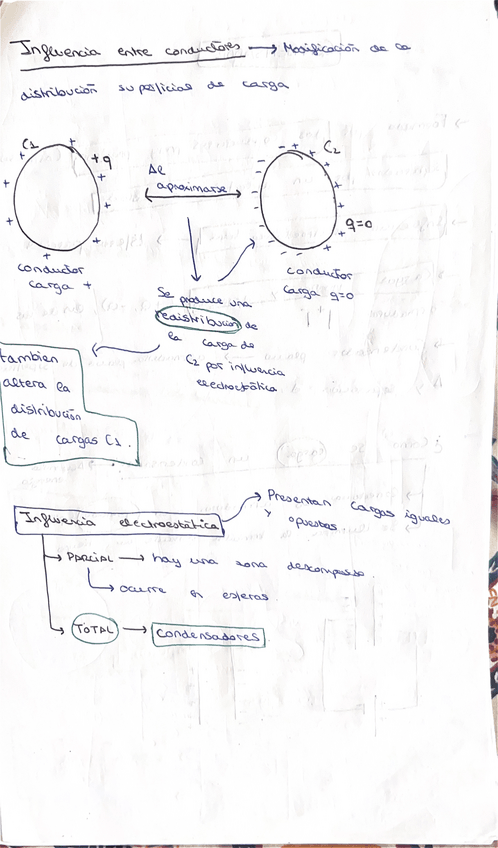 Influencia entre conductores → Modificación de la
distribución superficial de carga
C1
+q
Al
aproximarse
C2
q=0
conductor
carga +
conductor
carga q=0
Se produce una
redistribución de
la carga de
C2 por influencia
electroestática
tambien
altera la
distribución
de cargas C1.
Influencia electroestática
Presentan cargas iguales
y opuestas
PARCIAL → hay una zona descompensa
ocurre en esferas
TOTAL → condensadores